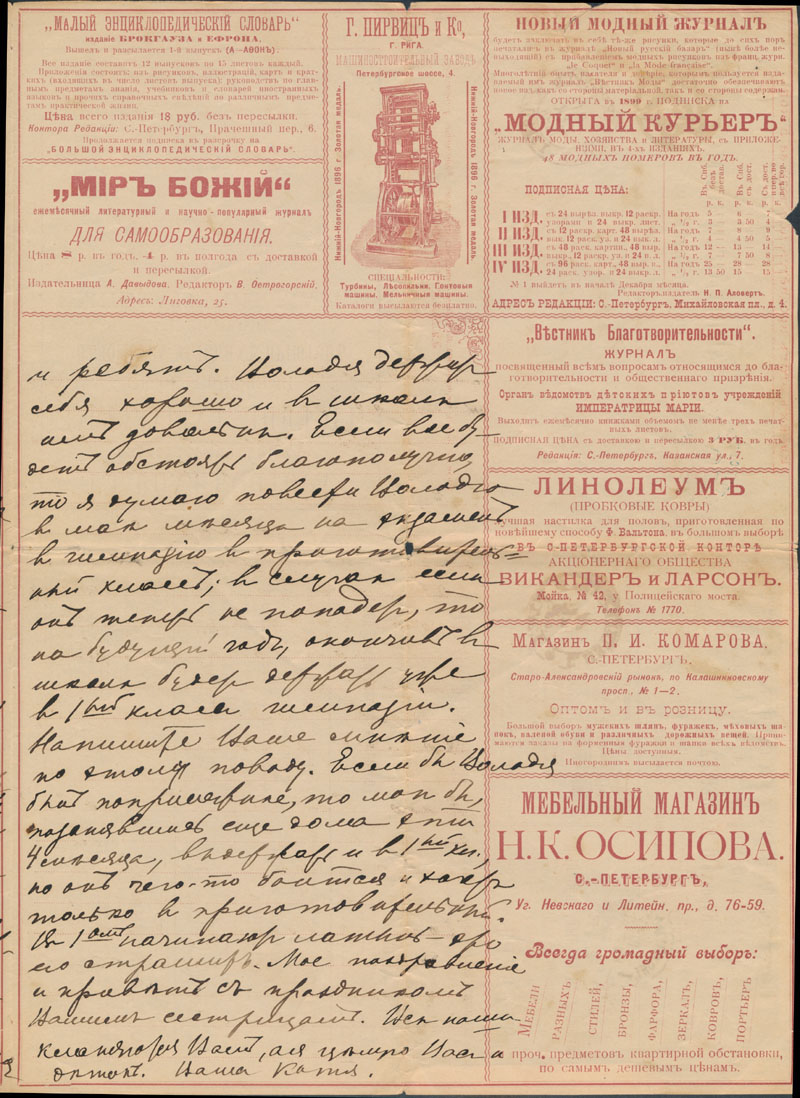 „МАЛЫЙ ЭНЦИКЛОПЕДИЧЕСКІЙ СЛОВАРЬ“
изданіе БРОКГАУЗА и ЕФРОНА.
Вышелъ и разсылается 1-й выпускъ (А—АѲОНЪ).
Все изданіе составитъ 12 выпусковъ по 15 листовъ каждый.
Приложенія состоятъ: изъ рисунковъ, иллюстрацій, картъ и
(входящихъ въ число листовъ выпуска); руководствъ по глав-
нымъ предметамъ знанія, учебниковъ и словарей иностранныхъ
языковъ и прочихъ справочныхъ свѣдѣній по различнымъ предме-
тамъ практической жизни.
Цѣна всего изданія 18 руб. безъ пересылки.
Контора Редакціи: С.-Петербургъ, Прачешный пер., 6.
Продолжается подписка въ разсрочку на
„БОЛЬШОЙ ЭНЦИКЛОПЕДИЧЕСКІЙ СЛОВАРЬ“.
„МІРЪ БОЖІЙ“
ежемѣсячный литературный и научно-популярный журналъ
ДЛЯ САМООБРАЗОВАНІЯ.
Цѣна р. въ годъ. р. въ полгода съ доставкой
и пересылкой.
Издательница А. Давыдова. Редакторъ В. Острогорскій.
Адресъ: Лиговка, 25.
Г. ПИРВИЦЪ и Ко,
Г. РИГА.
МАШИНОСТРОИТЕЛЬНЫЙ ЗАВОДЪ
Петербургское шоссе, 4.
Нижній-Новгородъ 1896 г. Золотая медаль.
Нижній-Новгородъ 1896 г. Золотая медаль.
СПЕЦІАЛЬНОСТИ:
Турбины, Лѣсопильни, Гонтовыя
машины, Мельничныя машины.
Каталоги высылаются безплатно.
НОВЫЙ МОДНЫЙ ЖУРНАЛЪ
будетъ заключать въ себѣ тѣ-же рисунки, которые до сихъ поръ
печатались въ журналѣ „Новый русскій базаръ“ (нынѣ болѣе не-
выходящій) съ прибавленіемъ модныхъ рисунковъ изъ франц. журн.
„le Coquet“ и „la Mode française“.
ОТКРЫТА въ 1899 г. ПОДПИСКА на
„МОДНЫЙ КУРЬЕРЪ“
ЖУРНАЛЪ МОДЫ, ХОЗЯЙСТВА и ЛИТЕРАТУРЫ, съ ПРИЛОЖЕ-
НІЯМИ, ВЪ 4-хъ ИЗДАНІЯХЪ.
48 МОДНЫХЪ НОМЕРОВЪ ВЪ ГОДЪ.
ПОДПИСНАЯ ЦѢНА:
I ИЗД.
II ИЗД.
III ИЗД.
IV ИЗД.
№ 1 выйдетъ въ началѣ Декабря мѣсяца.
Редакторъ-издатель Н. П. Аловертъ.
АДРЕСЪ РЕДАКЦІИ: С.-Петербургъ, Михайловская пл., д. 4.
„Вѣстникъ Благотворительности“.
ЖУРНАЛЪ
посвященный всѣмъ вопросамъ относящимся до бла-
готворительности и общественнаго призрѣнія.
Органъ вѣдомствъ дѣтскихъ пріютовъ учрежденій
ИМПЕРАТРИЦЫ МАРІИ.
Выходитъ ежемѣсячно книжками объемомъ не менѣе трехъ печат-
ныхъ листовъ.
ПОДПИСНАЯ ЦѢНА съ доставкою и пересылкою 3 РУБ. въ годъ
Редакція: С.-Петербургъ, Казанская ул., 7.
ЛИНОЛЕУМЪ
(ПРОБКОВЫЕ КОВРЫ)
лучшая настилка для половъ, приготовленная по
новѣйшему способу Ф. Вальтона, въ большомъ выборѣ
ВЪ С.-ПЕТЕРБУРГСКОЙ КОНТОРѢ
АКЦІОНЕРНАГО ОБЩЕСТВА
ВИКАНДЕРЪ и ЛАРСОНЪ.
Мойка, № 42, у Полицейскаго моста.
Телефонъ № 1770.
Магазинъ П. И. КОМАРОВА.
С.-ПЕТЕРБУРГЪ.
Старо-Александровскій рынокъ, по Калашниковскому
просп., № 1—2.
Оптомъ и въ розницу.
Большой выборъ мужскихъ шляпъ, фуражекъ, мѣховыхъ ша-
покъ, валеной обуви и различныхъ дорожныхъ вещей. Прини-
маются заказы на форменныя фуражки и шапки всѣхъ вѣдомствъ.
Цѣны доступныя.
Иногороднимъ высылается почтою.
МЕБЕЛЬНЫЙ МАГАЗИНЪ
Н. К. ОСИПОВА.
С.-ПЕТЕРБУРГЪ,
Уг. Невскаго и Литейн. пр., д. 76-59.
Всегда громадный выборъ:
МЕБЕЛИ
РАЗНЫХЪ
СТИЛЕЙ,
БРОНЗЫ,
ФАРФОРА,
ЗЕРКАЛЪ,
КОВРОВЪ,
ПОРТЬЕРЪ
и проч. предметовъ квартирной обстановки,
по самымъ дешевымъ цѣнамъ.
и ребятъ. Володя держитъ
себя хорошо и въ школѣ
имъ довольны. Если все бу-
детъ обстоять благополучно,
то я думаю повести Володю
въ маѣ мѣсяцѣ на экзаменъ
въ гимназію въ приготовитель-
ный классъ; въ случаѣ если
онъ теперь не попадетъ, то
на будущій годъ, окончивъ
школу будетъ держать уже
въ 1ый классъ гимназіи.
Напишите Ваше мнѣніе
по этому поводу. Если бы Володя
былъ поприлежнѣе, то могъ бы,
позанявшись еще дома эти
4 мѣсяца, выдержать и въ 1ый кл.,
но онъ чего-то боится и хочетъ
только въ приготовительный.
Въ 1омъ начинаютъ латынь – это
его страшитъ. Мое поздравленіе
и привѣтъ съ праздникомъ
Вашимъ сестрицамъ. Всѣ наши
кланяются Вамъ, а я цѣлую Васъ и
дѣтокъ. Ваша Катя.